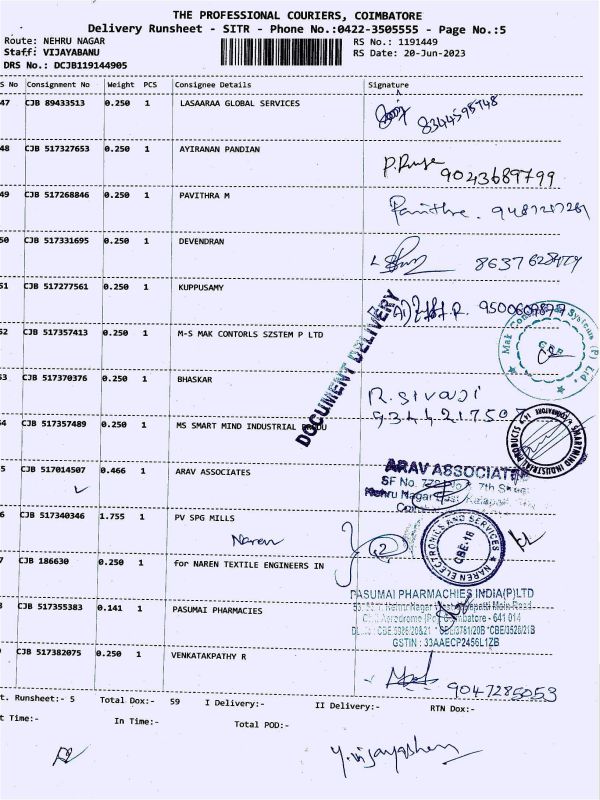 THE PROFESSIONAL COURIERS, COIMBATORE
Delivery Runsheet - SITR - Phone No.:0422-3505555 - Page No.:5
Route: NEHRU NAGAR RS No.: 1191449
Staff: VIJAYABANU RS Date: 20-Jun-2023
DRS No.: DCJB119144905
S No Consignment No Weight PCS Consignee Details Signature
47 CJB 89433513 0.250 1 LASAARAA GLOBAL SERVICES
48 CJB 517327653 0.250 1 AYIRANAN PANDIAN
9043689799
49 CJB 517268846 0.250 1 PAVITHRA M
Pavithra.
50 CJB 517331695 0.250 1 DEVENDRAN
51 CJB 517277561 0.250 1 KUPPUSAMY
DOCUMENT DELIVERY
52 CJB 517357413 0.250 1 M-S MAK CONTORLS SZSTEM P LTD
53 CJB 517370376 0.250 1 BHASKAR
R. Sivaji
54 CJB 517357489 0.250 1 MS SMART MIND INDUSTRIAL
SMARTMIND INDUSTRIAL PRODUCTS
5 CJB 517014507 0.466 1 ARAV ASSOCIATES
ARAV ASSOCIATES
SF No. 7th Street
Nehru Nagar
6 CJB 517340346 1.755 1 PV SPG MILLS
Naren
NAREN ELECTRONICS AND SERVICES
CBE-18
7 CJB 186630 0.250 1 for NAREN TEXTILE ENGINEERS IN
8 CJB 517355383 0.141 1 PASUMAI PHARMACIES
PASUMAI PHARMACHIES INDIA(P)LTD
Nehru Nagar Main Road
Aerodrome (Po) Coimbatore - 641 014
GSTIN : 33AAECP2456L1ZB
9 CJB 517382075 0.250 1 VENKATAKPATHY R
9047285053
t. Runsheet:- 5 Total Dox:- 59 I Delivery:- II Delivery:- RTN Dox:-
t Time:- In Time:- Total POD:-